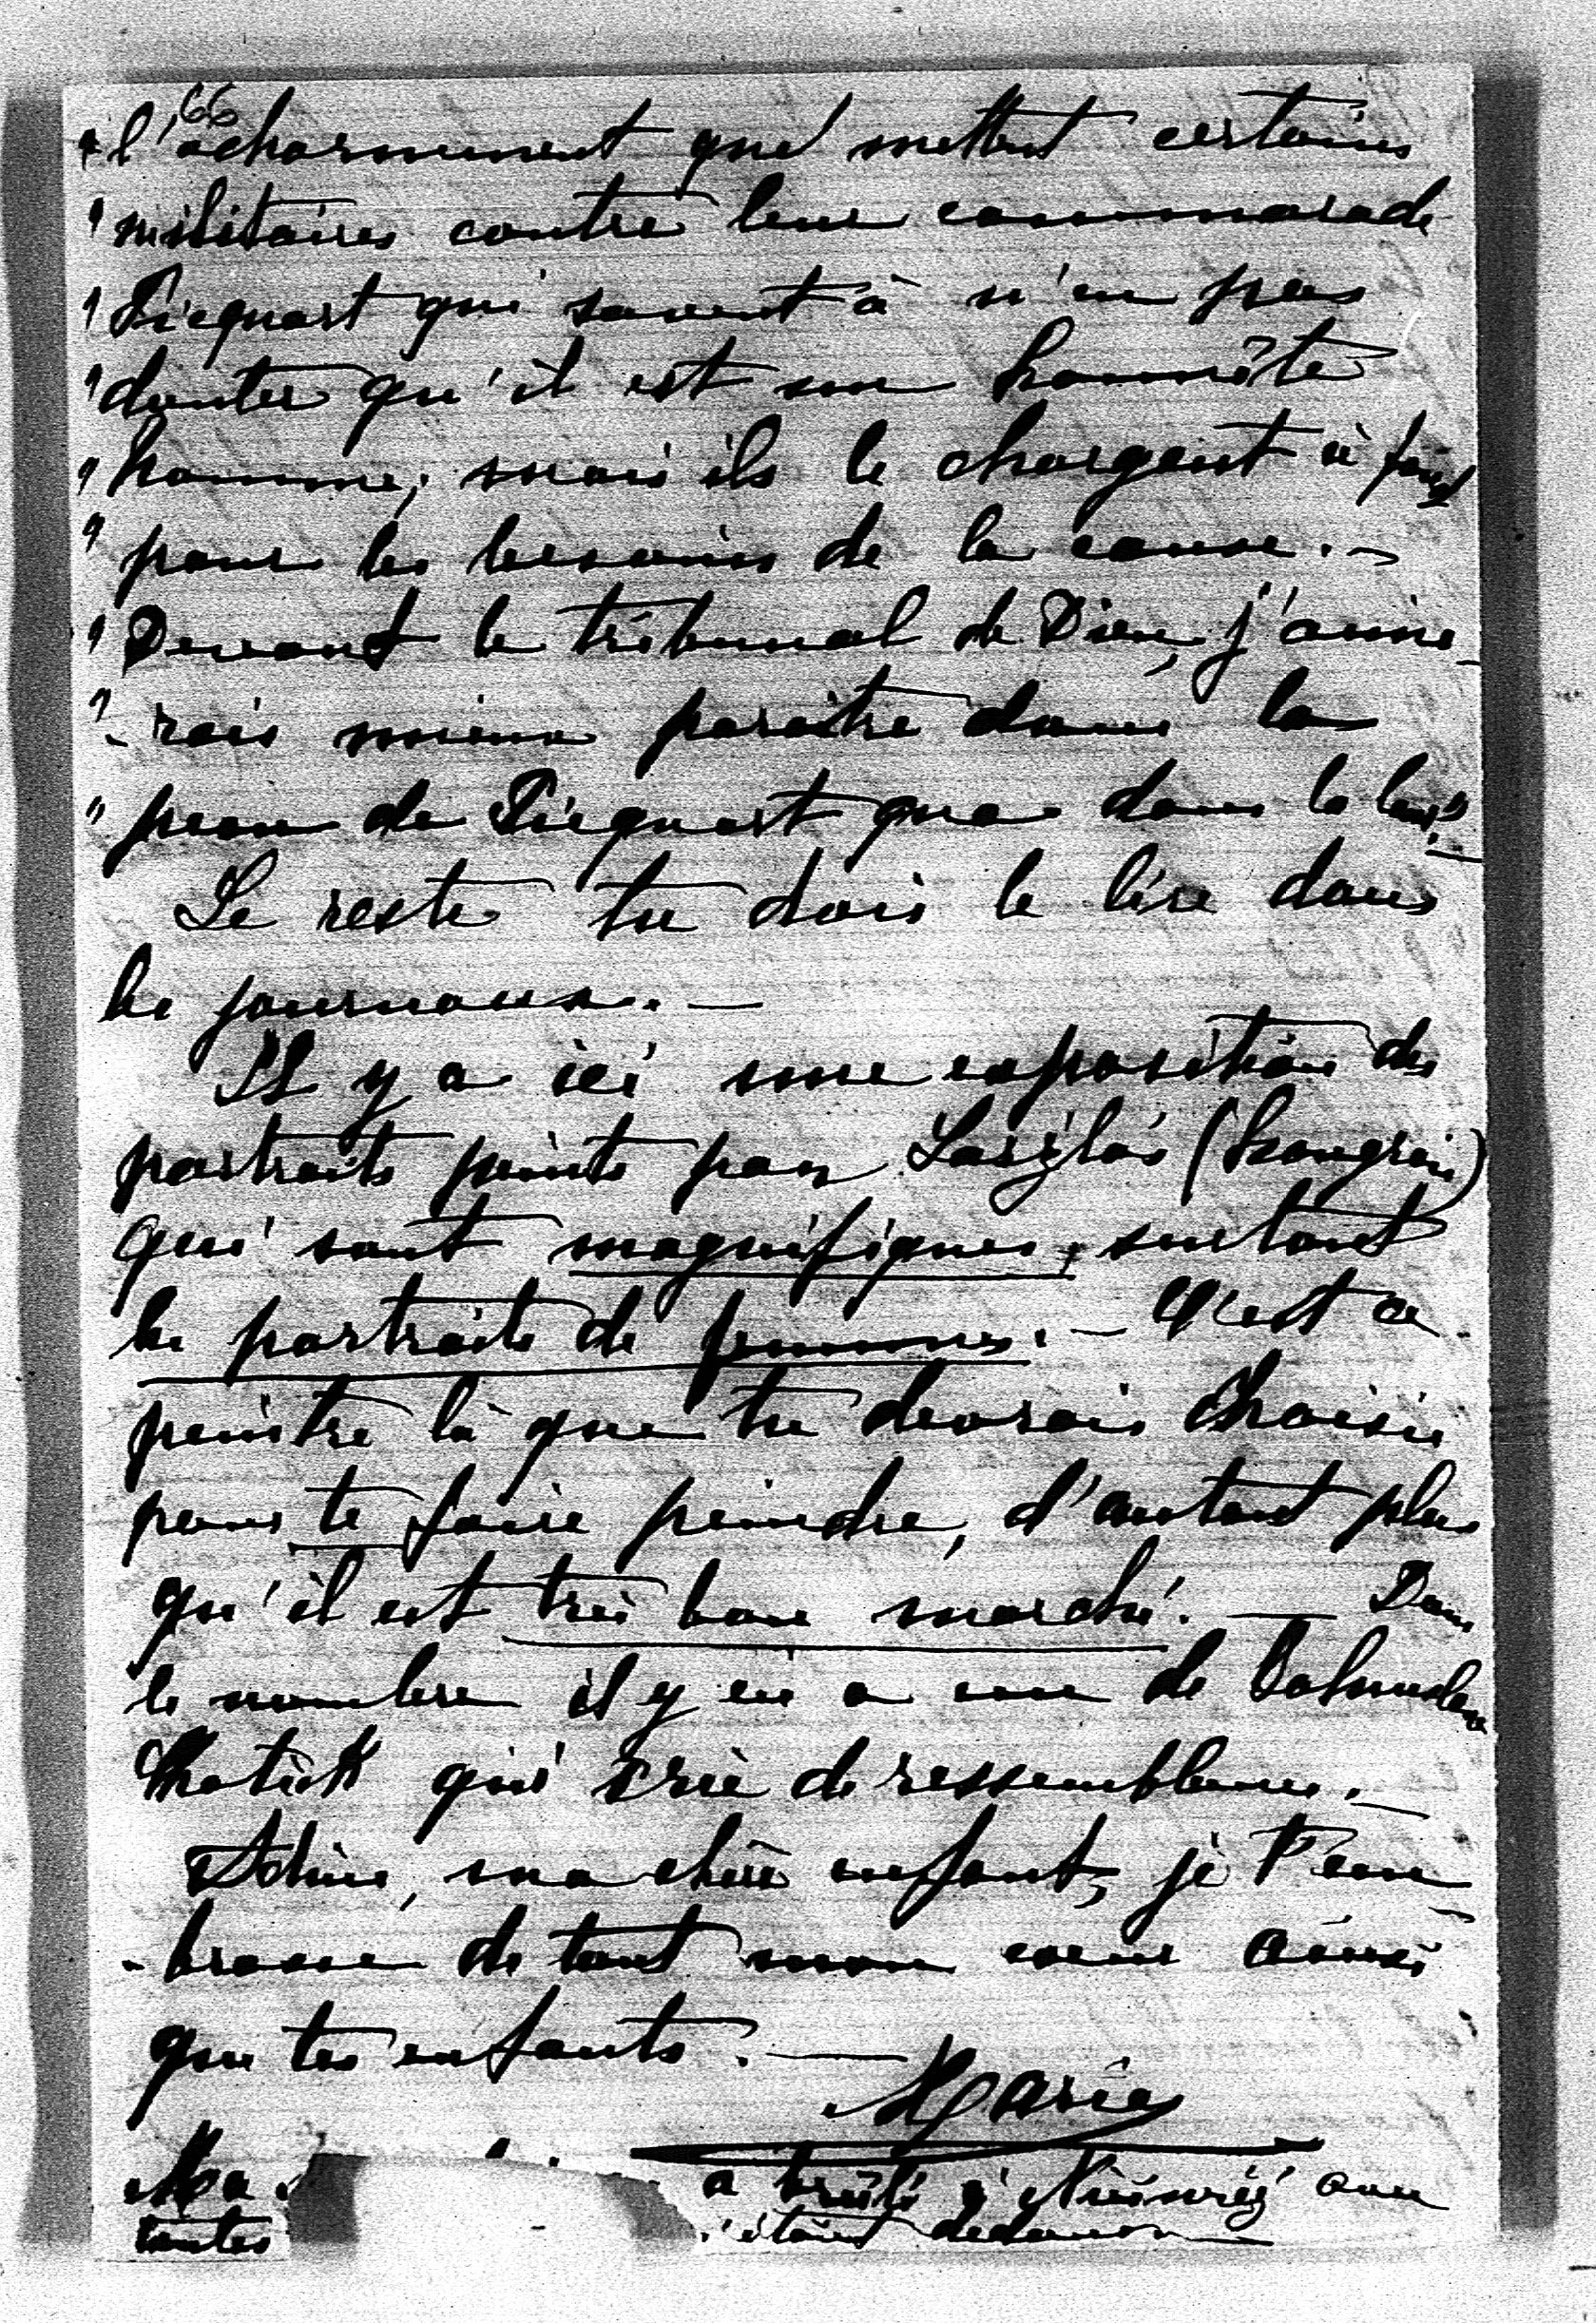 66
"l'acharnement que mettent certains
"militaires contre leur cammarade
"Picquart qui savent à n'en pas
"douter qu'il est un honnête
"homme; mais ils le chargent à fond
"pour les besoins de la cause. —
"Devant le tribunal de Dieu, j'aime-
"-rais mieux paraître dans la
"peau de Picquart que dans la leur". —
Le reste tu dois le lire dans
les journaux. —
Il y a ici une exposition des
portraits peints par Laszlós (hongrois)
qui sont magnifiques, surtout
les portraits de femmes. — C'est ce
peintre là que tu devrais choisir
pour te faire peindre, d'autant plus
qu'il est très bon marché. — Dans
le nombre il y en a une de
qui crie de ressemblance. —
Adieu, ma chère enfant, je t'em-
-brasse de tout mon coeur ainsi
que tes enfants. —
Marie
Ma a brûlé à avec
toutes étaient dedans —